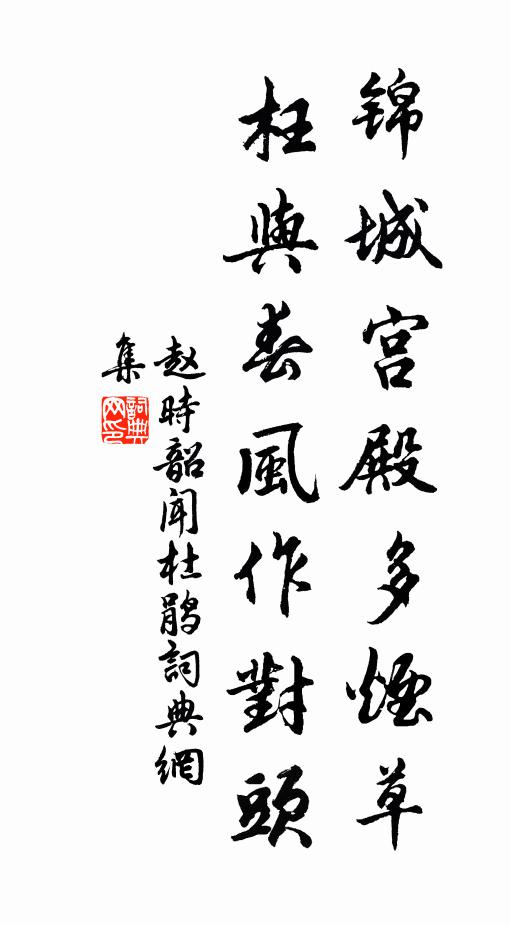 锦城宫殿多煙草
枉與春風作對頭
赵時韶闻杜鹃詞典網
集
詞典
网印